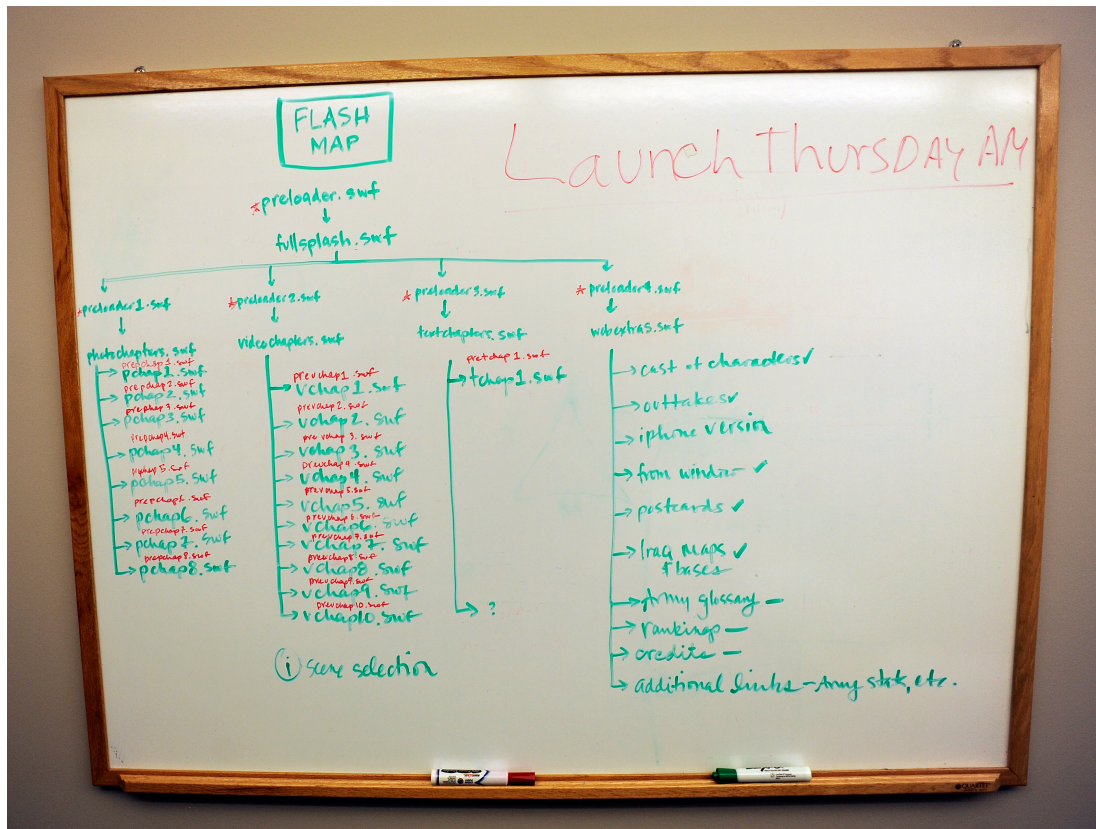 FLASH
MAP
Launch Thursday AM
*preloader.swf
fullsplash.swf
*preloader1.swf
photochapters.swf
prepchap1.swf
pchap1.swf
prepchap2.swf
pchap2.swf
prepchap3.swf
pchap3.swf
prepchap4.swf
pchap4.swf
prepchap5.swf
pchap5.swf
prepchap6.swf
pchap6.swf
prepchap7.swf
pchap7.swf
prepchap8.swf
pchap8.swf
*preloader2.swf
videochapters.swf
prevchap1.swf
vchap1.swf
prevchap2.swf
vchap2.swf
prevchap3.swf
vchap3.swf
prevchap4.swf
vchap4.swf
prevchap5.swf
vchap5.swf
prevchap6.swf
vchap6.swf
prevchap7.swf
vchap7.swf
prevchap8.swf
vchap8.swf
prevchap9.swf
vchap9.swf
prevchap10.swf
vchap10.swf
i scene selection
*preloader3.swf
textchapters.swf
pretchap1.swf
tchap1.swf
?
*preloader4.swf
webextras.swf
cast of characters ✓
outtakes ✓
iphone version
from window ✓
postcards ✓
Iraq maps ✓
+ bases
Army glossary —
rankings —
credits —
additional links - Army stats, etc.
QUARTET